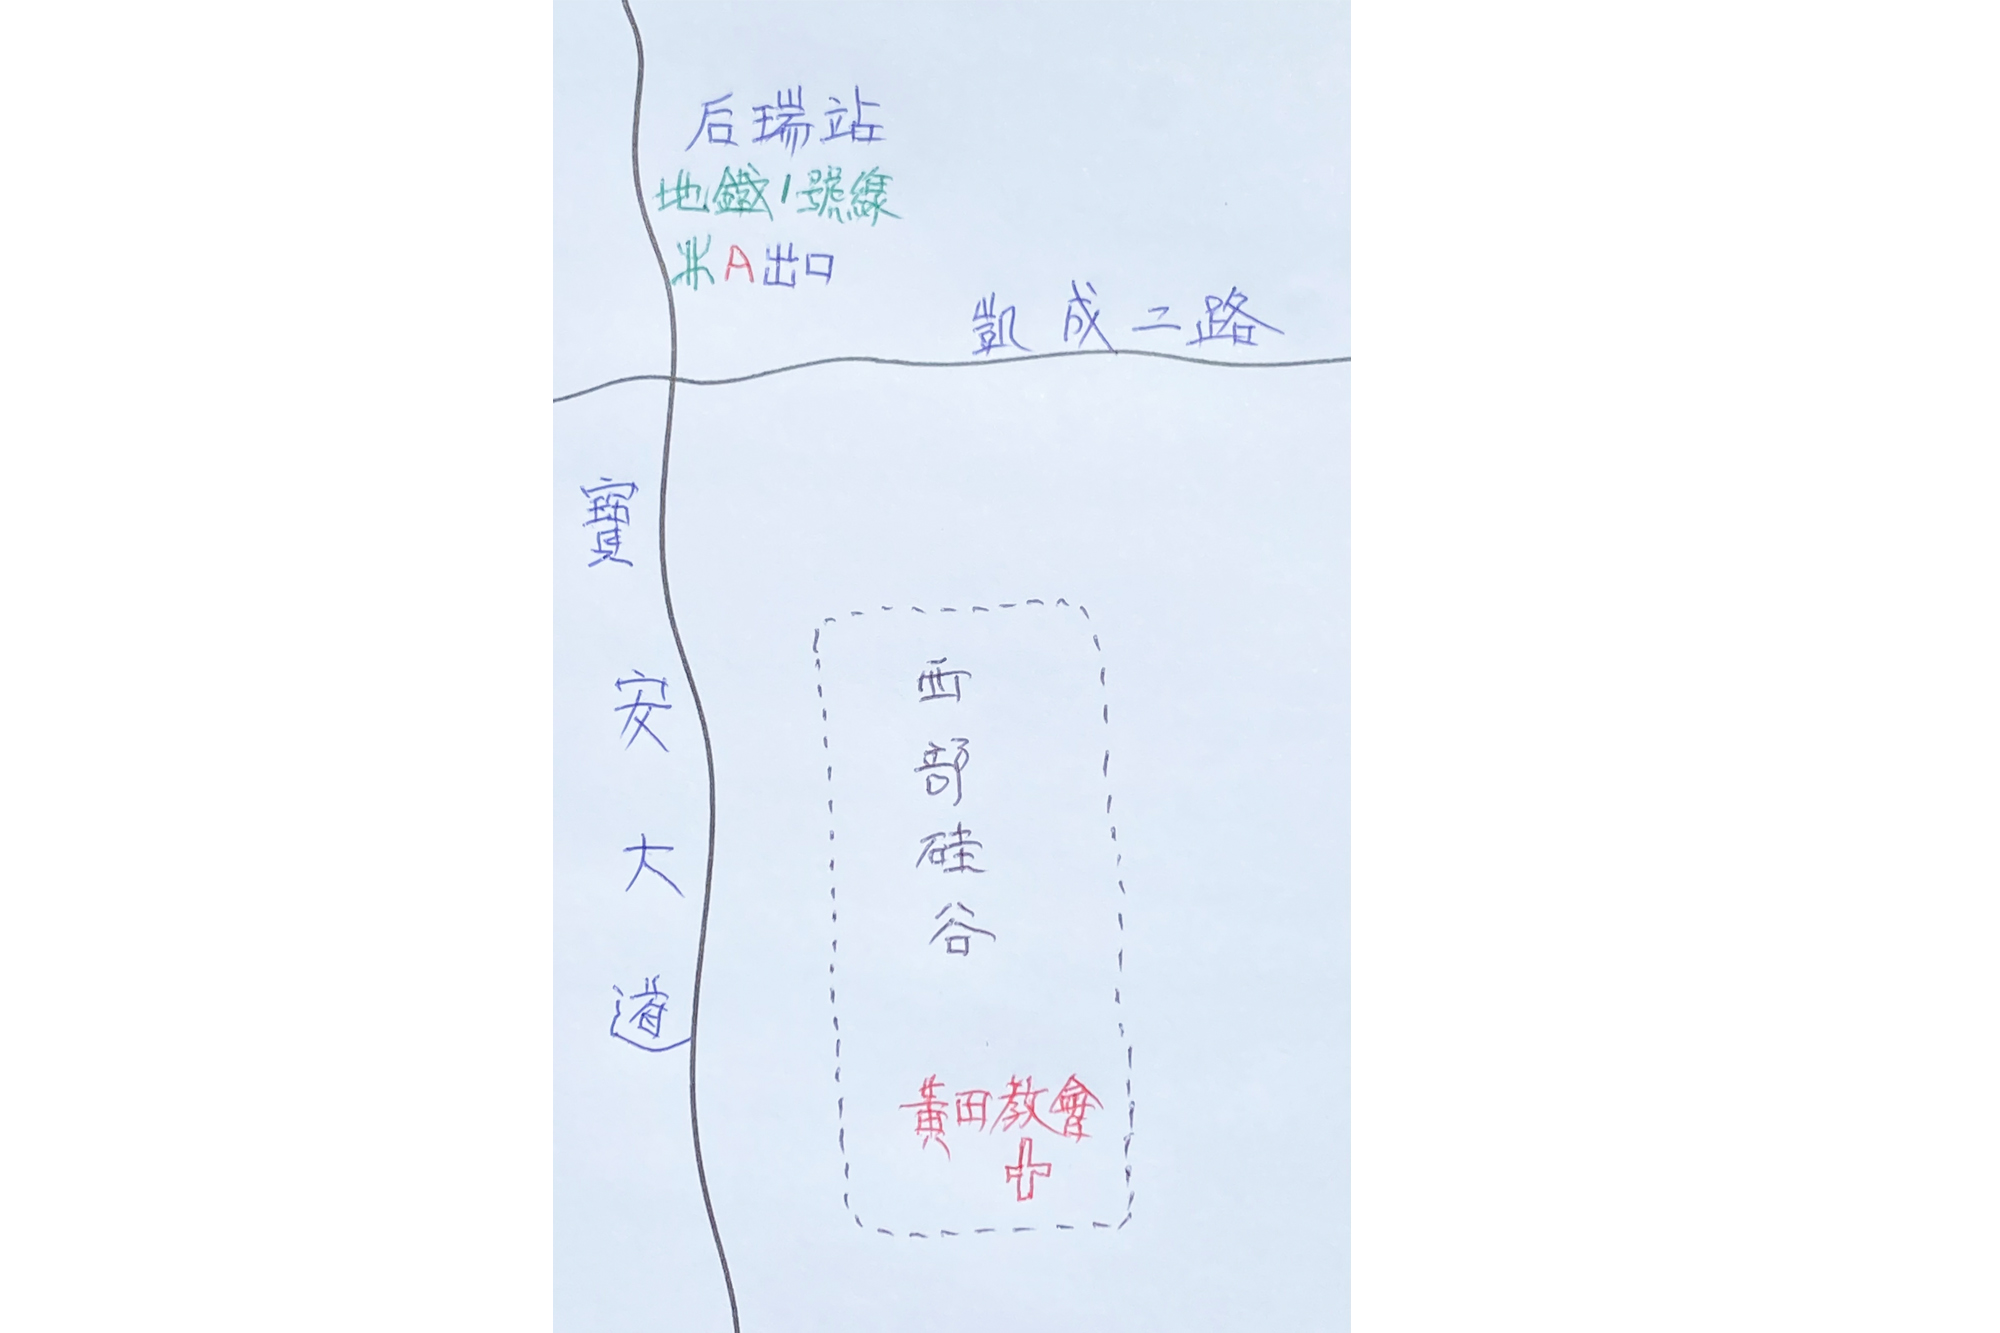 后瑞站
地鐵1號線
A出口
凱成二路
寶安大道
西部硅谷
黃田教會